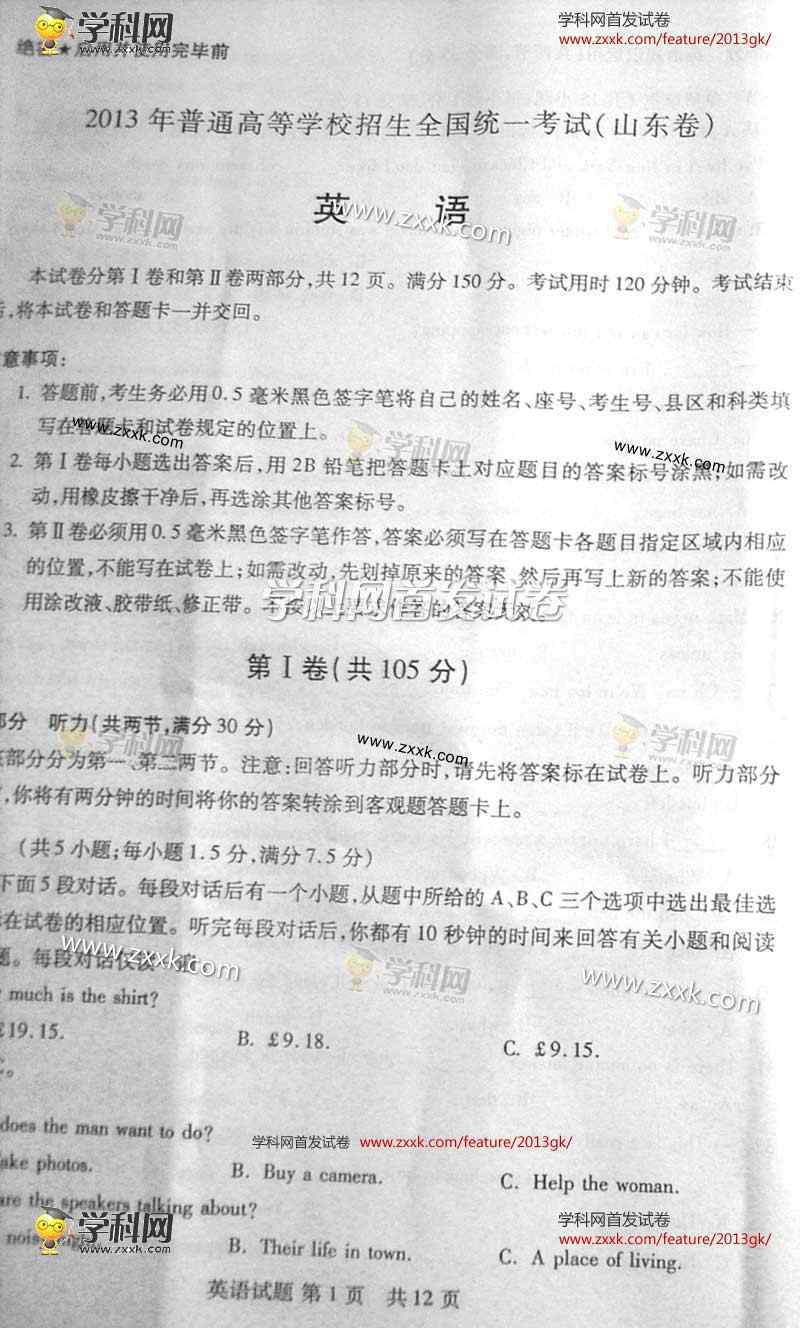 学科网首发试卷
www.zxxk.com/feature/2013gk/
绝密★启用并使用完毕前
2013年普通高等学校招生全国统一考试(山东卷)
英 语
学科网
www.zxxk.com
www.zxxk.com
学科网
www.zxxk.com
本试卷分第Ⅰ卷和第Ⅱ卷两部分,共12页。满分150分。考试用时120分钟。考试结束
后,将本试卷和答题卡一并交回。
意事项:
1. 答题前,考生务必用0.5毫米黑色签字笔将自己的姓名、座号、考生号、县区和科类填
写在答题卡和试卷规定的位置上。
www.zxxk.com
学科网
www.zxxk.com
www.zxxk.com
2. 第Ⅰ卷每小题选出答案后,用2B铅笔把答题卡上对应题目的答案标号涂黑;如需改
动,用橡皮擦干净后,再选涂其他答案标号。
3. 第Ⅱ卷必须用0.5毫米黑色签字笔作答,答案必须写在答题卡各题目指定区域内相应
的位置,不能写在试卷上;如需改动,先划掉原来的答案,然后再写上新的答案;不能使
用涂改液、胶带纸、修正带。不按
学科网首发试卷
第Ⅰ卷(共105分)
部分 听力(共两节,满分30分)
学科网
www.zxxk.com
www.zxxk.com
学科网
www.zxxk.com
该部分分为第一、第二两节。注意:回答听力部分时,请先将答案标在试卷上。听力部分
,你将有两分钟的时间将你的答案转涂到客观题答题卡上。
(共5小题;每小题1.5分,满分7.5分)
下面5段对话。每段对话后有一个小题,从题中所给的A、B、C三个选项中选出最佳选
标在试卷的相应位置。听完每段对话后,你都有10秒钟的时间来回答有关小题和阅读
题。每段对话仅读一遍
www.zxxk.com
学科网
www.zxxk.com
www.zxxk.com
much is the shirt?
£19.15. B. £9.18. C. £9.15.
does the man want to do?
学科网首发试卷 www.zxxk.com/feature/2013gk/
ake photos. B. Buy a camera. C. Help the woman.
are the speakers talking about?
学科网
www.zxxk.com
学科网首发试卷
www.zxxk.com/feature/2013gk/
B. Their life in town. C. A place of living.
英语试题 第1页 共12页